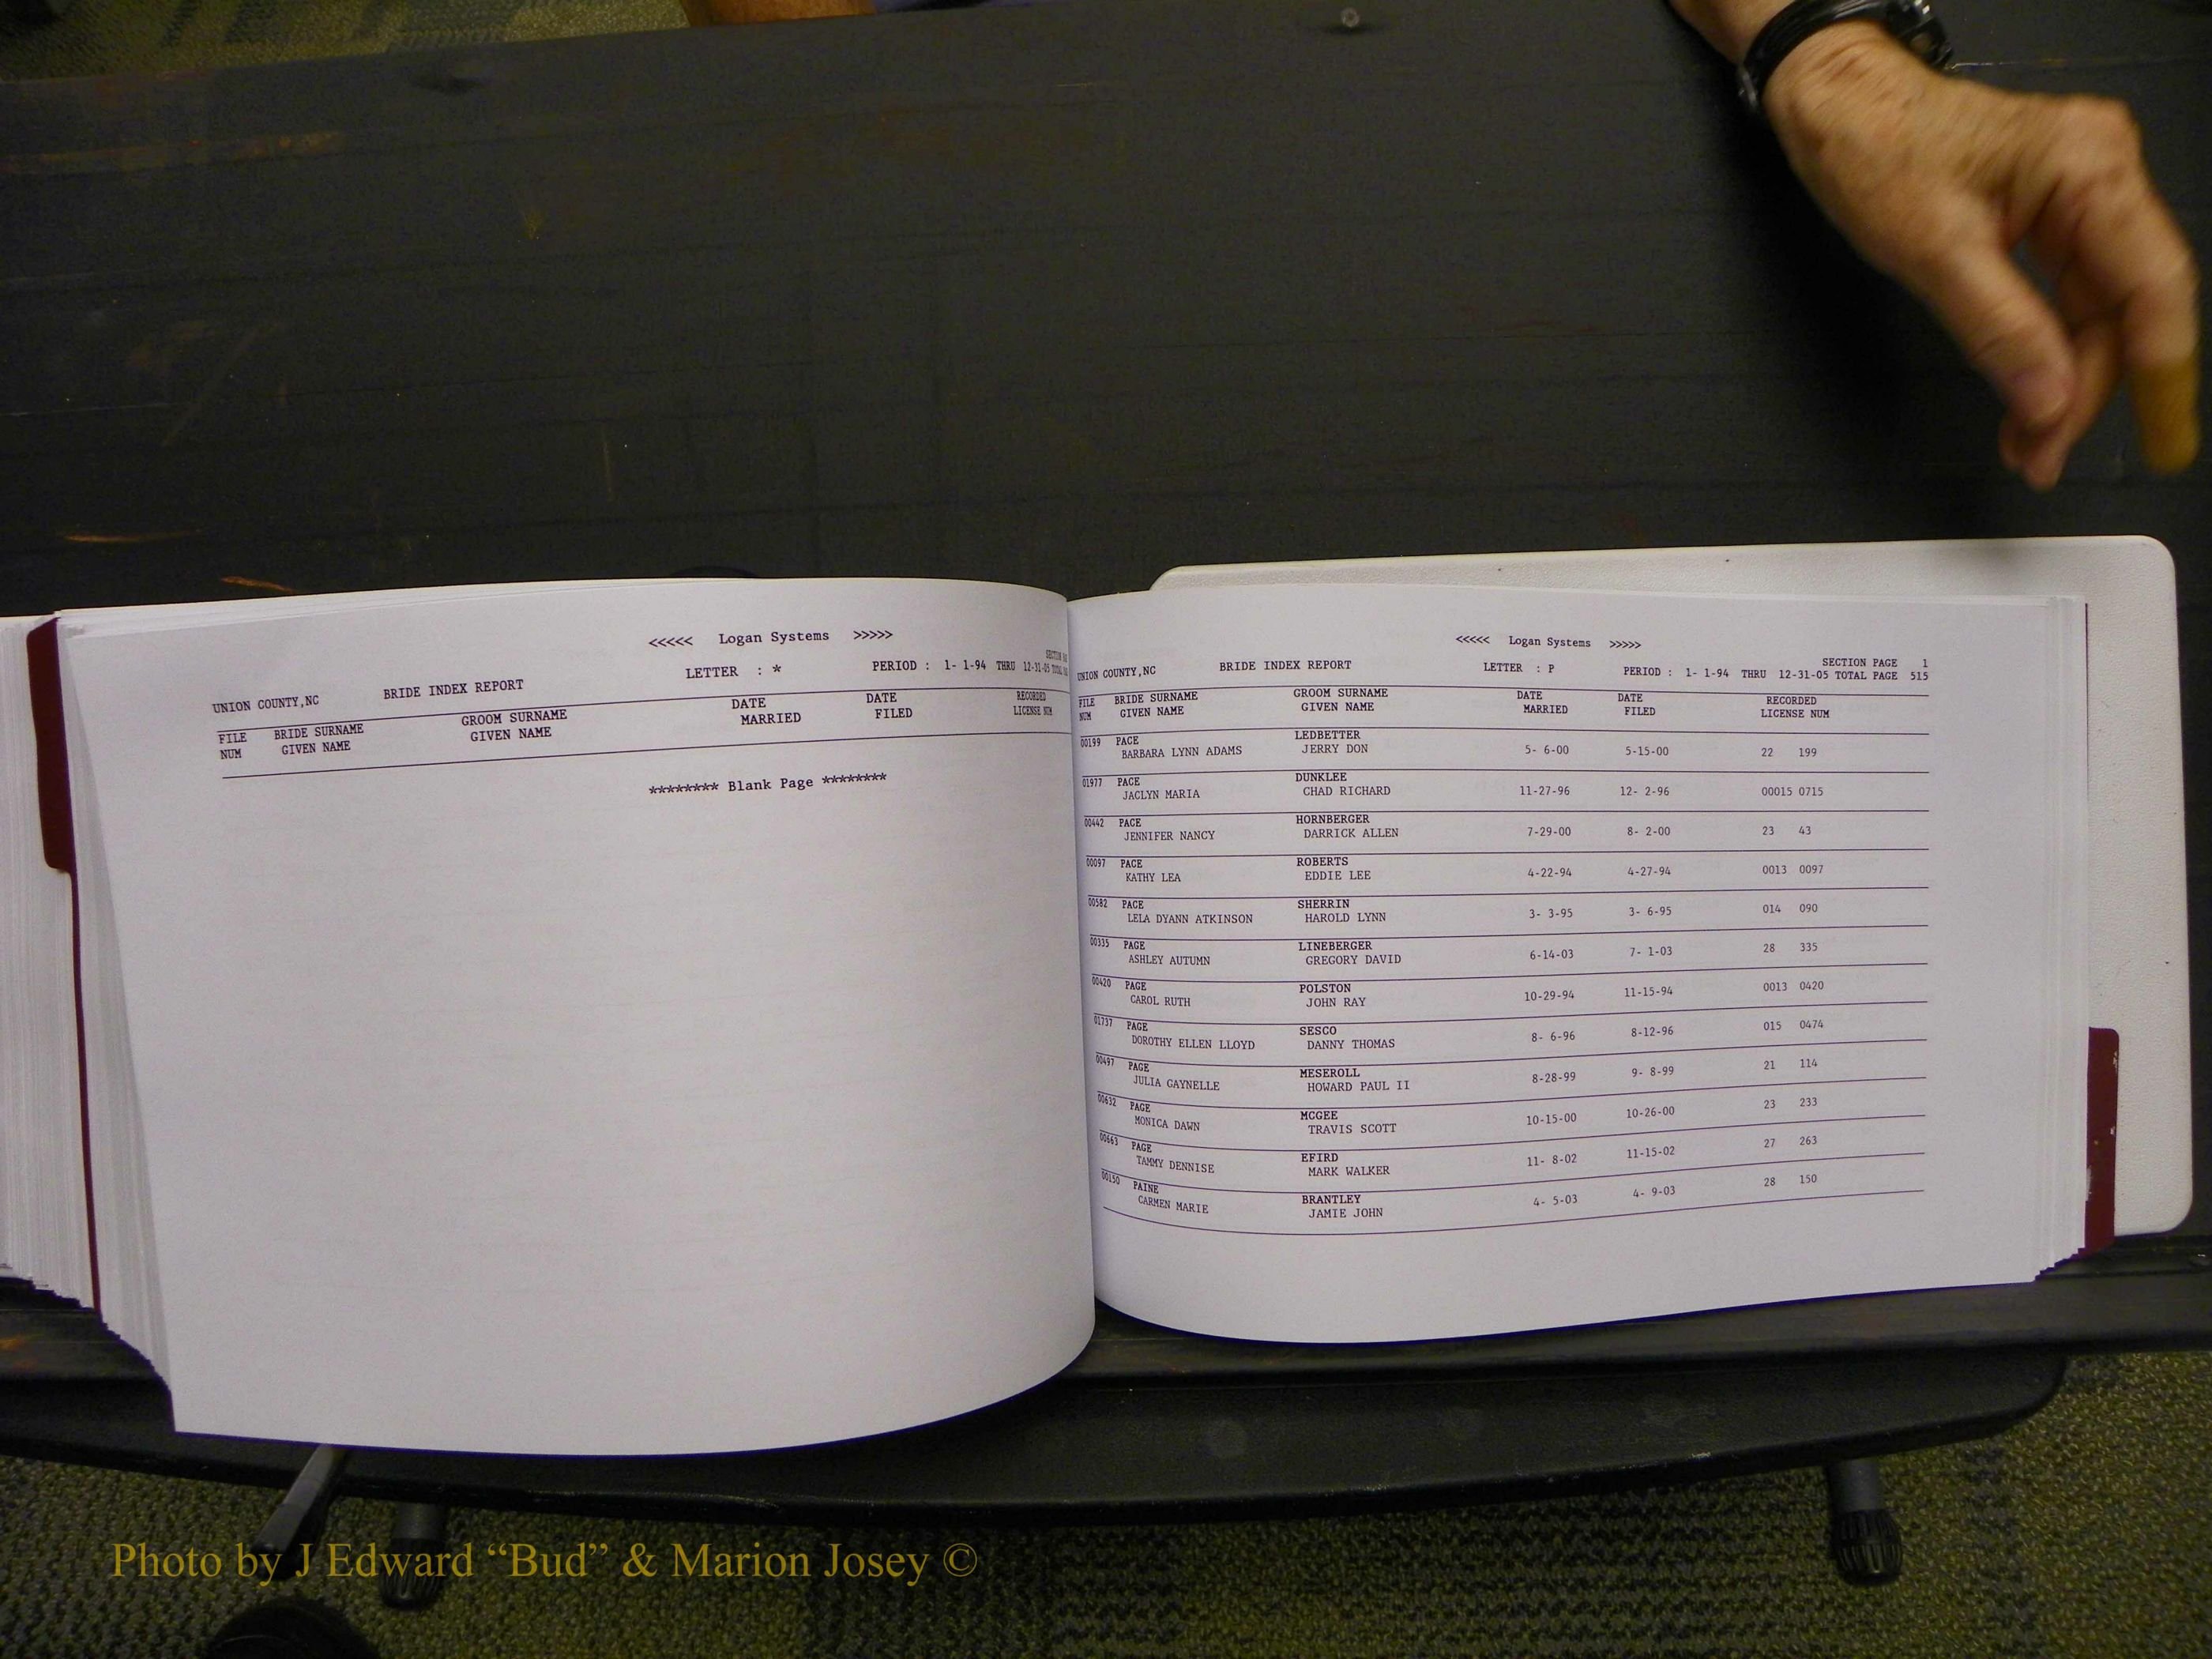 <<<<< Logan Systems >>>>>
UNION COUNTY,NC BRIDE INDEX REPORT LETTER : * PERIOD : 1- 1-94 THRU 12-31-05
FILE BRIDE SURNAME GROOM SURNAME DATE DATE RECORDED
NUM GIVEN NAME GIVEN NAME MARRIED FILED LICENSE NUM
******** Blank Page ********
<<<<< Logan Systems >>>>>
SECTION PAGE 1
UNION COUNTY,NC BRIDE INDEX REPORT LETTER : P PERIOD : 1- 1-94 THRU 12-31-05 TOTAL PAGE 515
FILE BRIDE SURNAME GROOM SURNAME DATE DATE RECORDED
NUM GIVEN NAME GIVEN NAME MARRIED FILED LICENSE NUM
00199 PACE LEDBETTER
BARBARA LYNN ADAMS JERRY DON 5- 6-00 5-15-00 22 199
01977 PACE DUNKLEE
JACLYN MARIA CHAD RICHARD 11-27-96 12- 2-96 00015 0715
00442 PACE HORNBERGER
JENNIFER NANCY DARRICK ALLEN 7-29-00 8- 2-00 23 43
00097 PACE ROBERTS
KATHY LEA EDDIE LEE 4-22-94 4-27-94 0013 0097
00582 PACE SHERRIN
LELA DYANN ATKINSON HAROLD LYNN 3- 3-95 3- 6-95 014 090
00335 PAGE LINEBERGER
ASHLEY AUTUMN GREGORY DAVID 6-14-03 7- 1-03 28 335
00420 PAGE POLSTON
CAROL RUTH JOHN RAY 10-29-94 11-15-94 0013 0420
01737 PAGE SESCO
DOROTHY ELLEN LLOYD DANNY THOMAS 8- 6-96 8-12-96 015 0474
00497 PAGE MESEROLL
JULIA GAYNELLE HOWARD PAUL II 8-28-99 9- 8-99 21 114
00632 PAGE MCGEE
MONICA DAWN TRAVIS SCOTT 10-15-00 10-26-00 23 233
00663 PAGE EFIRD
TAMMY DENNISE MARK WALKER 11- 8-02 11-15-02 27 263
00150 PAINE BRANTLEY
CARMEN MARIE JAMIE JOHN 4- 5-03 4- 9-03 28 150
Photo by J Edward “Bud” & Marion Josey ©